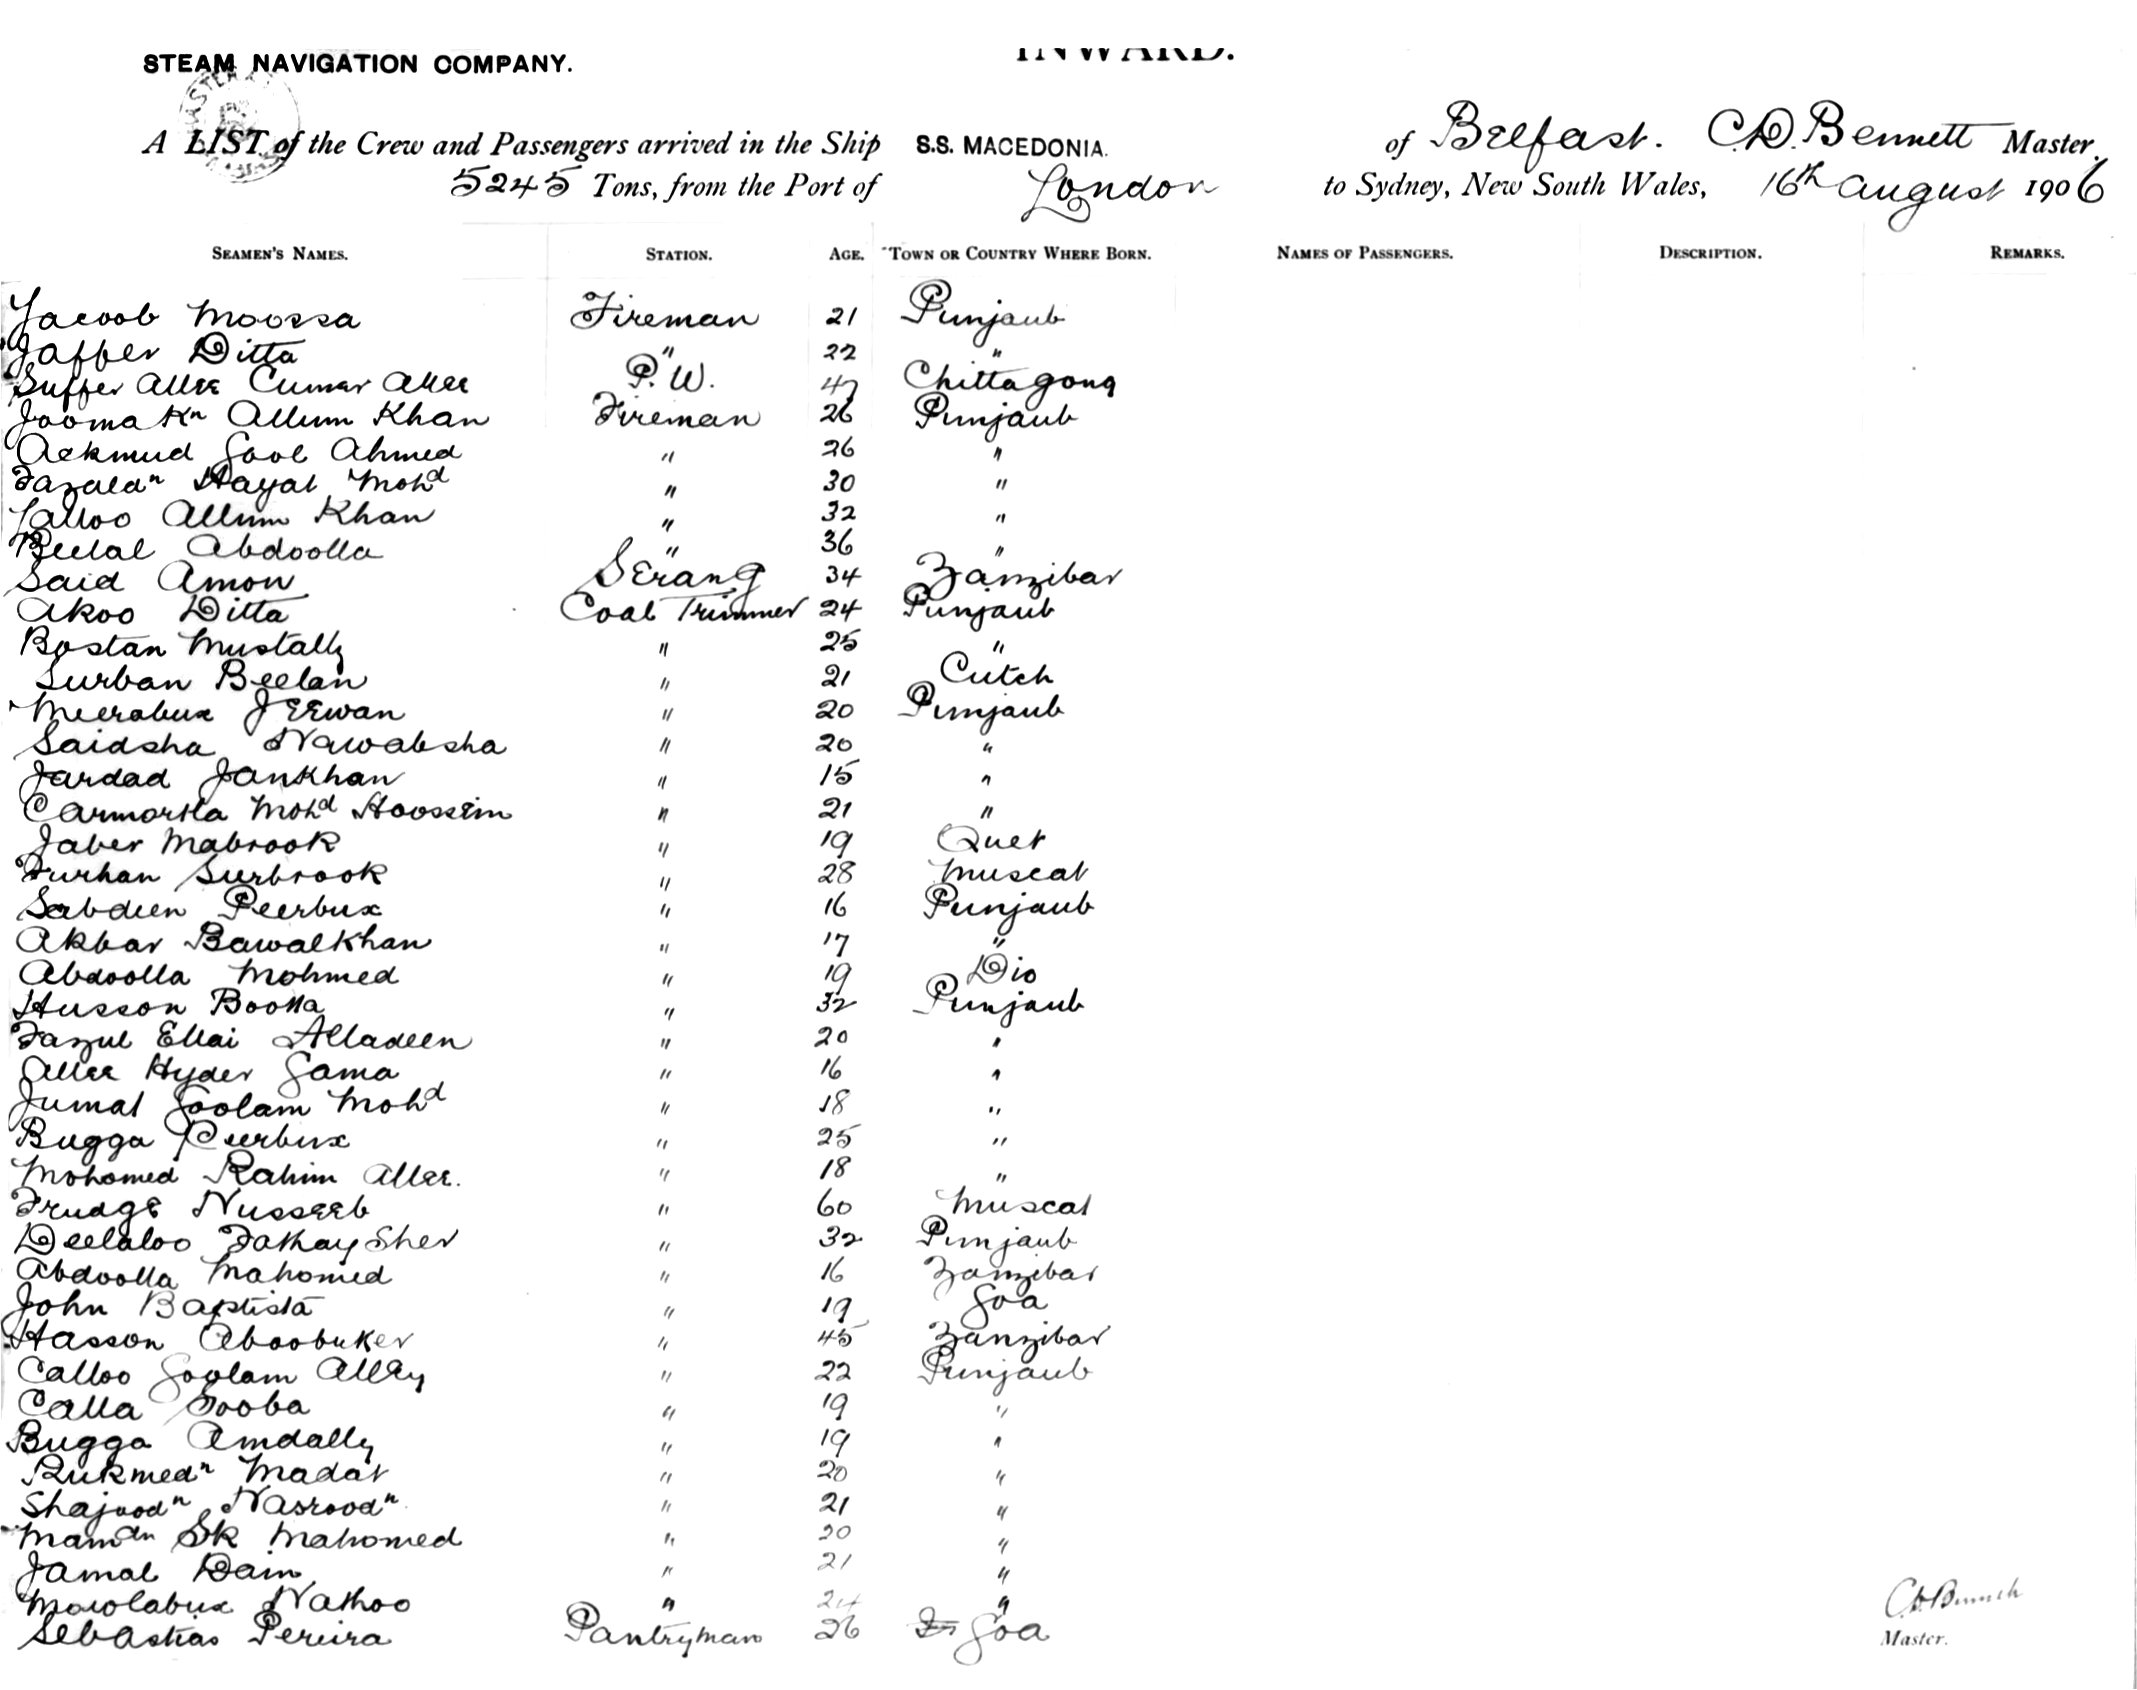 STEAM NAVIGATION COMPANY. INWARD.
A LIST of the Crew and Passengers arrived in the Ship S.S. MACEDONIA. of Belfast. C.D. Bennett Master,
5245 Tons, from the Port of London to Sydney, New South Wales, 16th August 1906
SEAMEN'S NAMES. STATION. AGE. TOWN OR COUNTRY WHERE BORN. NAMES OF PASSENGERS. DESCRIPTION. REMARKS.
Yacoob Moossa Fireman 21 Punjaub
Jaffer Ditta " 22 "
Suffer Allee Cumar Allee P.W. 47 Chittagong
Jooma Kn Allum Khan Fireman 26 Punjaub
Ackmud Gool Ahmed " 26 "
Fazaldn Hayat Mohd " 30 "
Lalloo Allum Khan " 32 "
Beelal Abdoolla " 36 "
Said Amon Serang 34 Zanzibar
Akoo Ditta Coal Trimmer 24 Punjaub
Bostan Mustally " 25 "
Surban Beelan " 21 Cutch
Meerabux Jeewan " 20 Punjaub
Saidsha Nawabsha " 20 "
Jardad Jankhan " 15 "
Carmorlla Mohd Hoossein " 21 "
Jaber Mabrook " 19 Quet
Furhan Surbrook " 28 Muscat
Sabdeen Peerbux " 16 Punjaub
Akbar Bawalkhan " 17 "
Abdoolla Mohmed " 19 Dio
Husson Bootta " 32 Punjaub
Fazul Ellai Alladeen " 20 "
Allee Hyder Gama " 16 "
Jumal Goolam Mohd " 18 "
Bugga Peerbux " 25 "
Mohomed Rahim Allee. " 18 "
Frudge Nusseeb " 60 Muscat
Deelaloo Fathay Sher " 32 Punjaub
Abdoolla Mahomed " 16 Zanzibar
John Baptista " 19 Goa
Hasson Aboobuker " 45 Zanzibar
Calloo Goolam Alley " 22 Punjaub
Calla Sooba " 19 "
Bugga Amdally " 19 "
Rukmedn Madat " 20 "
Shajoodn Nasroodn " 21 "
Mamdn Sk Mahomed " 20 "
Jamal Dain " 21 "
Mowlabux Nathoo " 24 "
Sebastiao Pereira Pantryman 26 Goa
C.D. Bennett
Master.